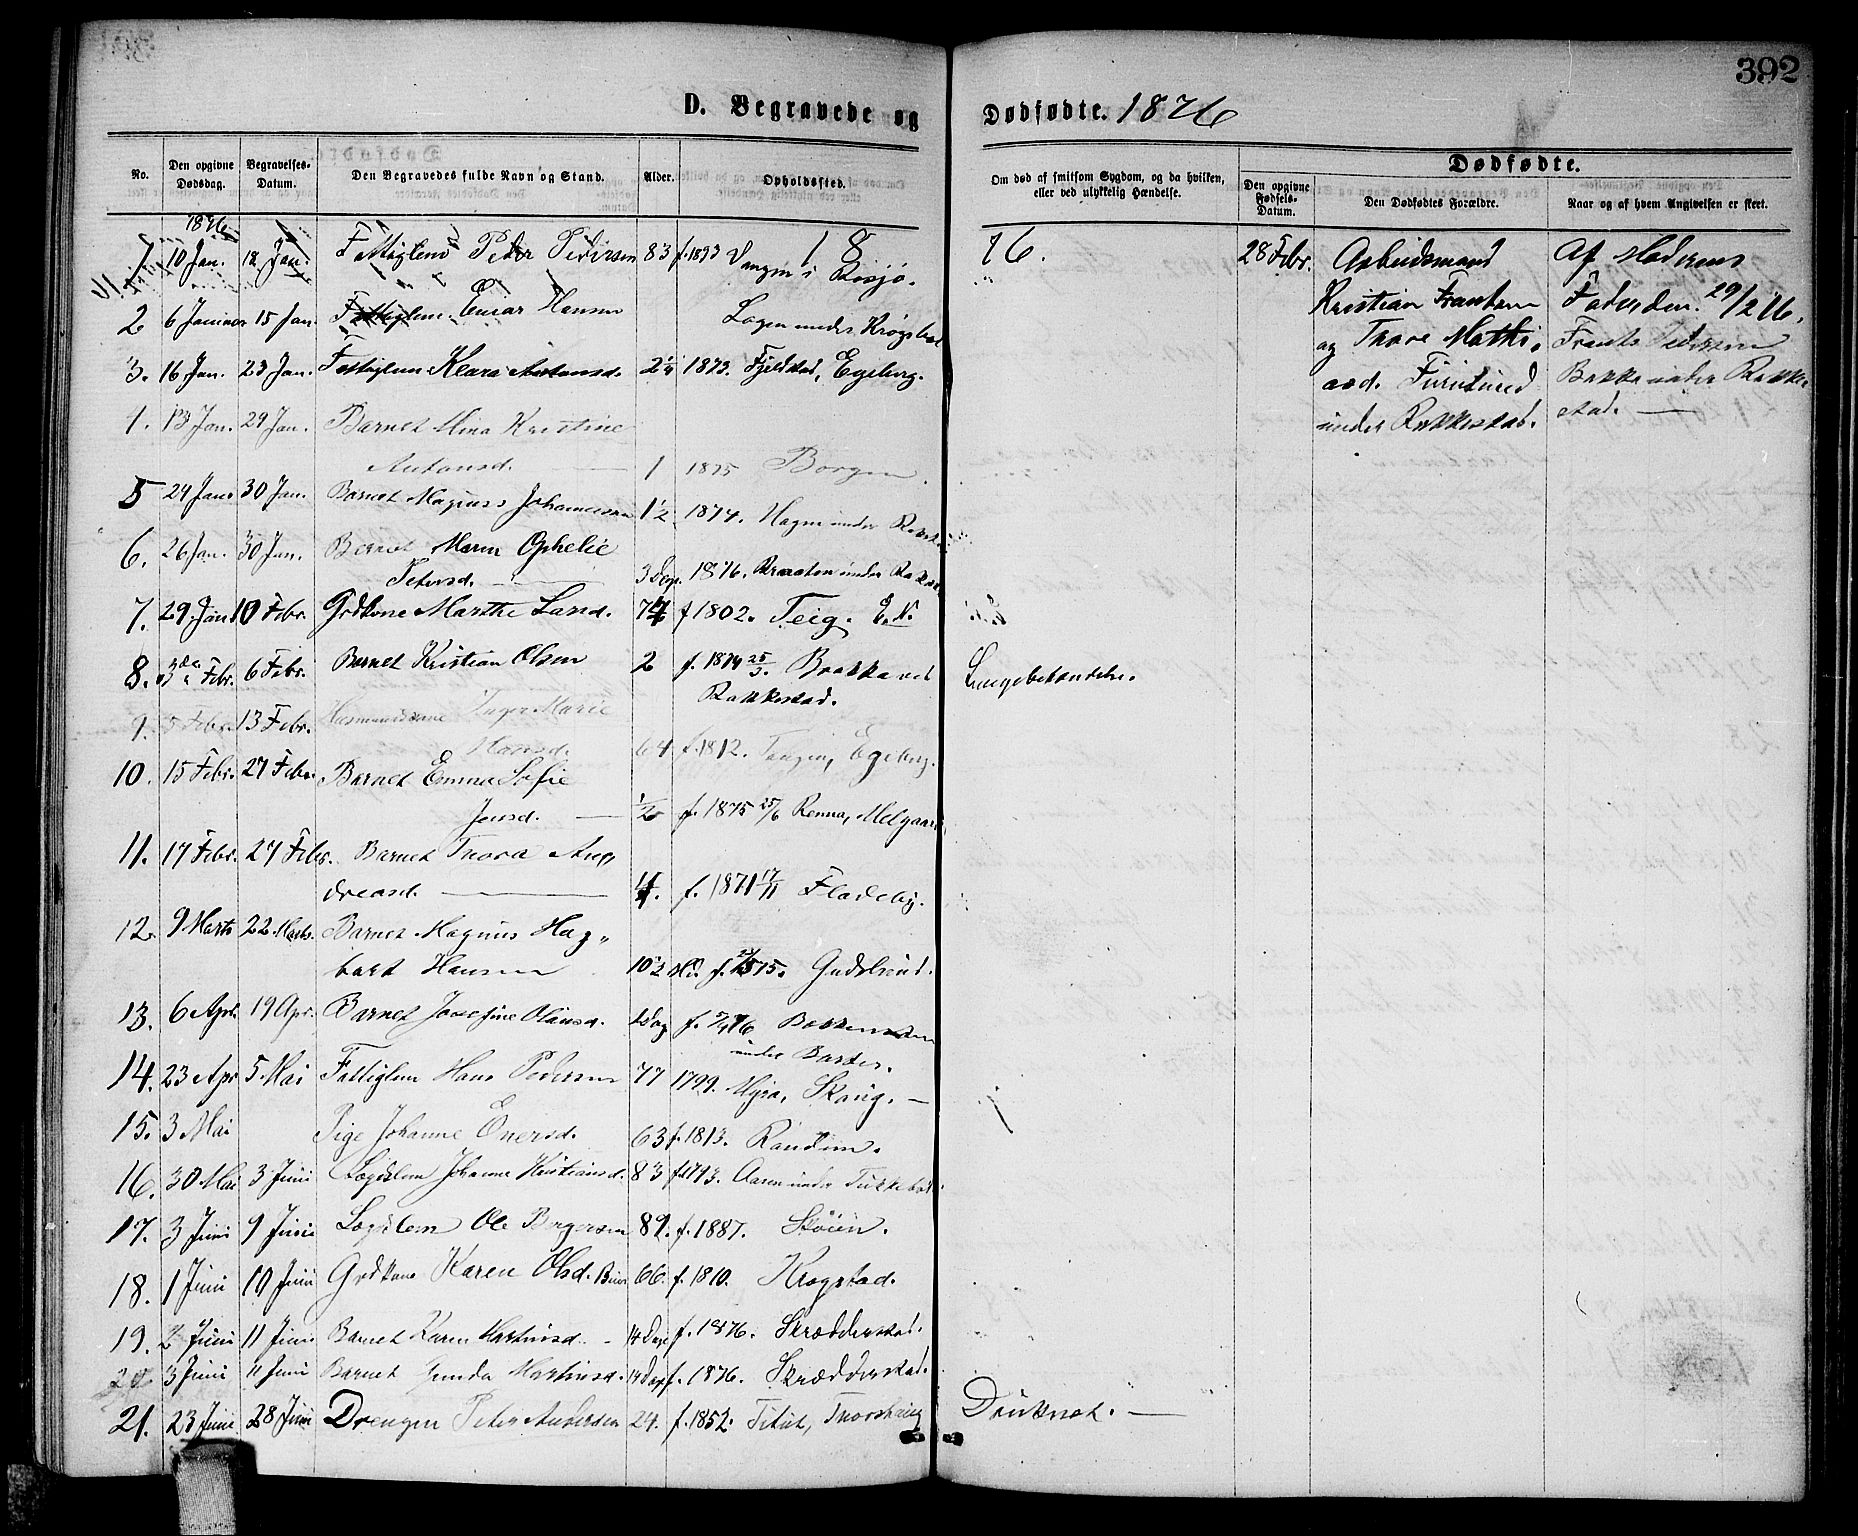 392
D. Begravede og Dødfødte. 1876
No.
Den opgivne Dødsdag.
Begravelses-Datum.
Den Begravedes fulde Navn og Stand.
Alder.
Opholdssted.
Om død af smitsom Sygdom, og da hvilken, eller ved ulykkelig Hændelse.
Dødfødte.
Den opgivne Fødsels-Datum.
Den Dødfødtes Forældre.
Naar og af hvem Angivelsen er skeet.
1876
1 10 Jan. 18 Jan. Fattiglem Peder Pedersen 83 f. 1893
18 76.
2 6 Januar 15 Jan. Fattiglem Einar Hansen Lagen under Krogsbøl
3. 16 Jan. 23 Jan. Fattiglem Klara Antonsd. 2¼ 1873. Fjeldstad, Egeberg.
4. 13 Jan. 29 Jan. Barnet Mina Kristine
Antonsd. 1 1875 Borgen
5 24 Jan. 30 Jan. Barnet Magnus Johannessen 1½ 1874. Hagen under
6. 26 Jan. 30 Jan. Barnet Maren Ophelie
Petersd. 3 Dage. 1876. Braaten under
7. 29 Jan 10 Febr. Grdkone Marthe Larsd. 74 f 1802. Teig.
8. 3 Febr. 6 Febr. Barnet Kristian Olsen 2 f. 1874 25/3. Bakka ved
Rakkestad.
Lungebetændelse.
9. 5 Febr. 13 Febr. Husmandskone Inger Marie
Hansd. 64 f. 1812. Tangen, Egeberg.
10. 15 Febr. 27 Febr. Barnet Emma Sofie
Jensd. ½ f. 1875 25/6 Renna, Melgaard
11. 17 Febr. 27 Febr. Barnet Thora An-
dreasd. 4. f. 1871 17/11 Fladeby.
12. 9 Marts 22 Marts. Barnet Magnus Hag-
bart Hansen 10½ Gudslund.
13. 6 Apr. 19 Apr. Barnet Josefine Olausd. 1 Dag f.
under
14. 23 Apr 5 Mai Fattiglem Hans Pedersen 77 1799. Myra, Skaug.
15. 3 Mai Pige Johanne Enersd. 63 f. 1813. Randem.
16. 30 Mai 3 Juni Lægdslem Johanne Kristiansd. 83 f. 1793. Aaren under
17. 3 Juni 9 Juni Lægdslem Ole Borgersen 89. f. 1887. Skøien.
18. 1 Juni 10 Juni Grdkone Karen Olsd. 66. f. 1810. Krogstad.
19. 2 Juni 11 Juni Barnet Karen Martinsd. 14 Dage f. 1876. Skrædderstad.
20 3 Juni 11 Juni Barnet Gunda Martinsd. 14 Dage f. 1876. Skrædderstad.
21. 23 Juni 28 Juni Drengen Peter Andersen 24. f. 1852.
Druknet.
28 Febr.
Arbeidsmand
Kristian Frantsen
og Thore Mathi-
asd. Furulund
under Rakkestad.
Af Moderens
Fader den 29/2 76,
Frants Pedersen
Bakke under Rakke-
stad.